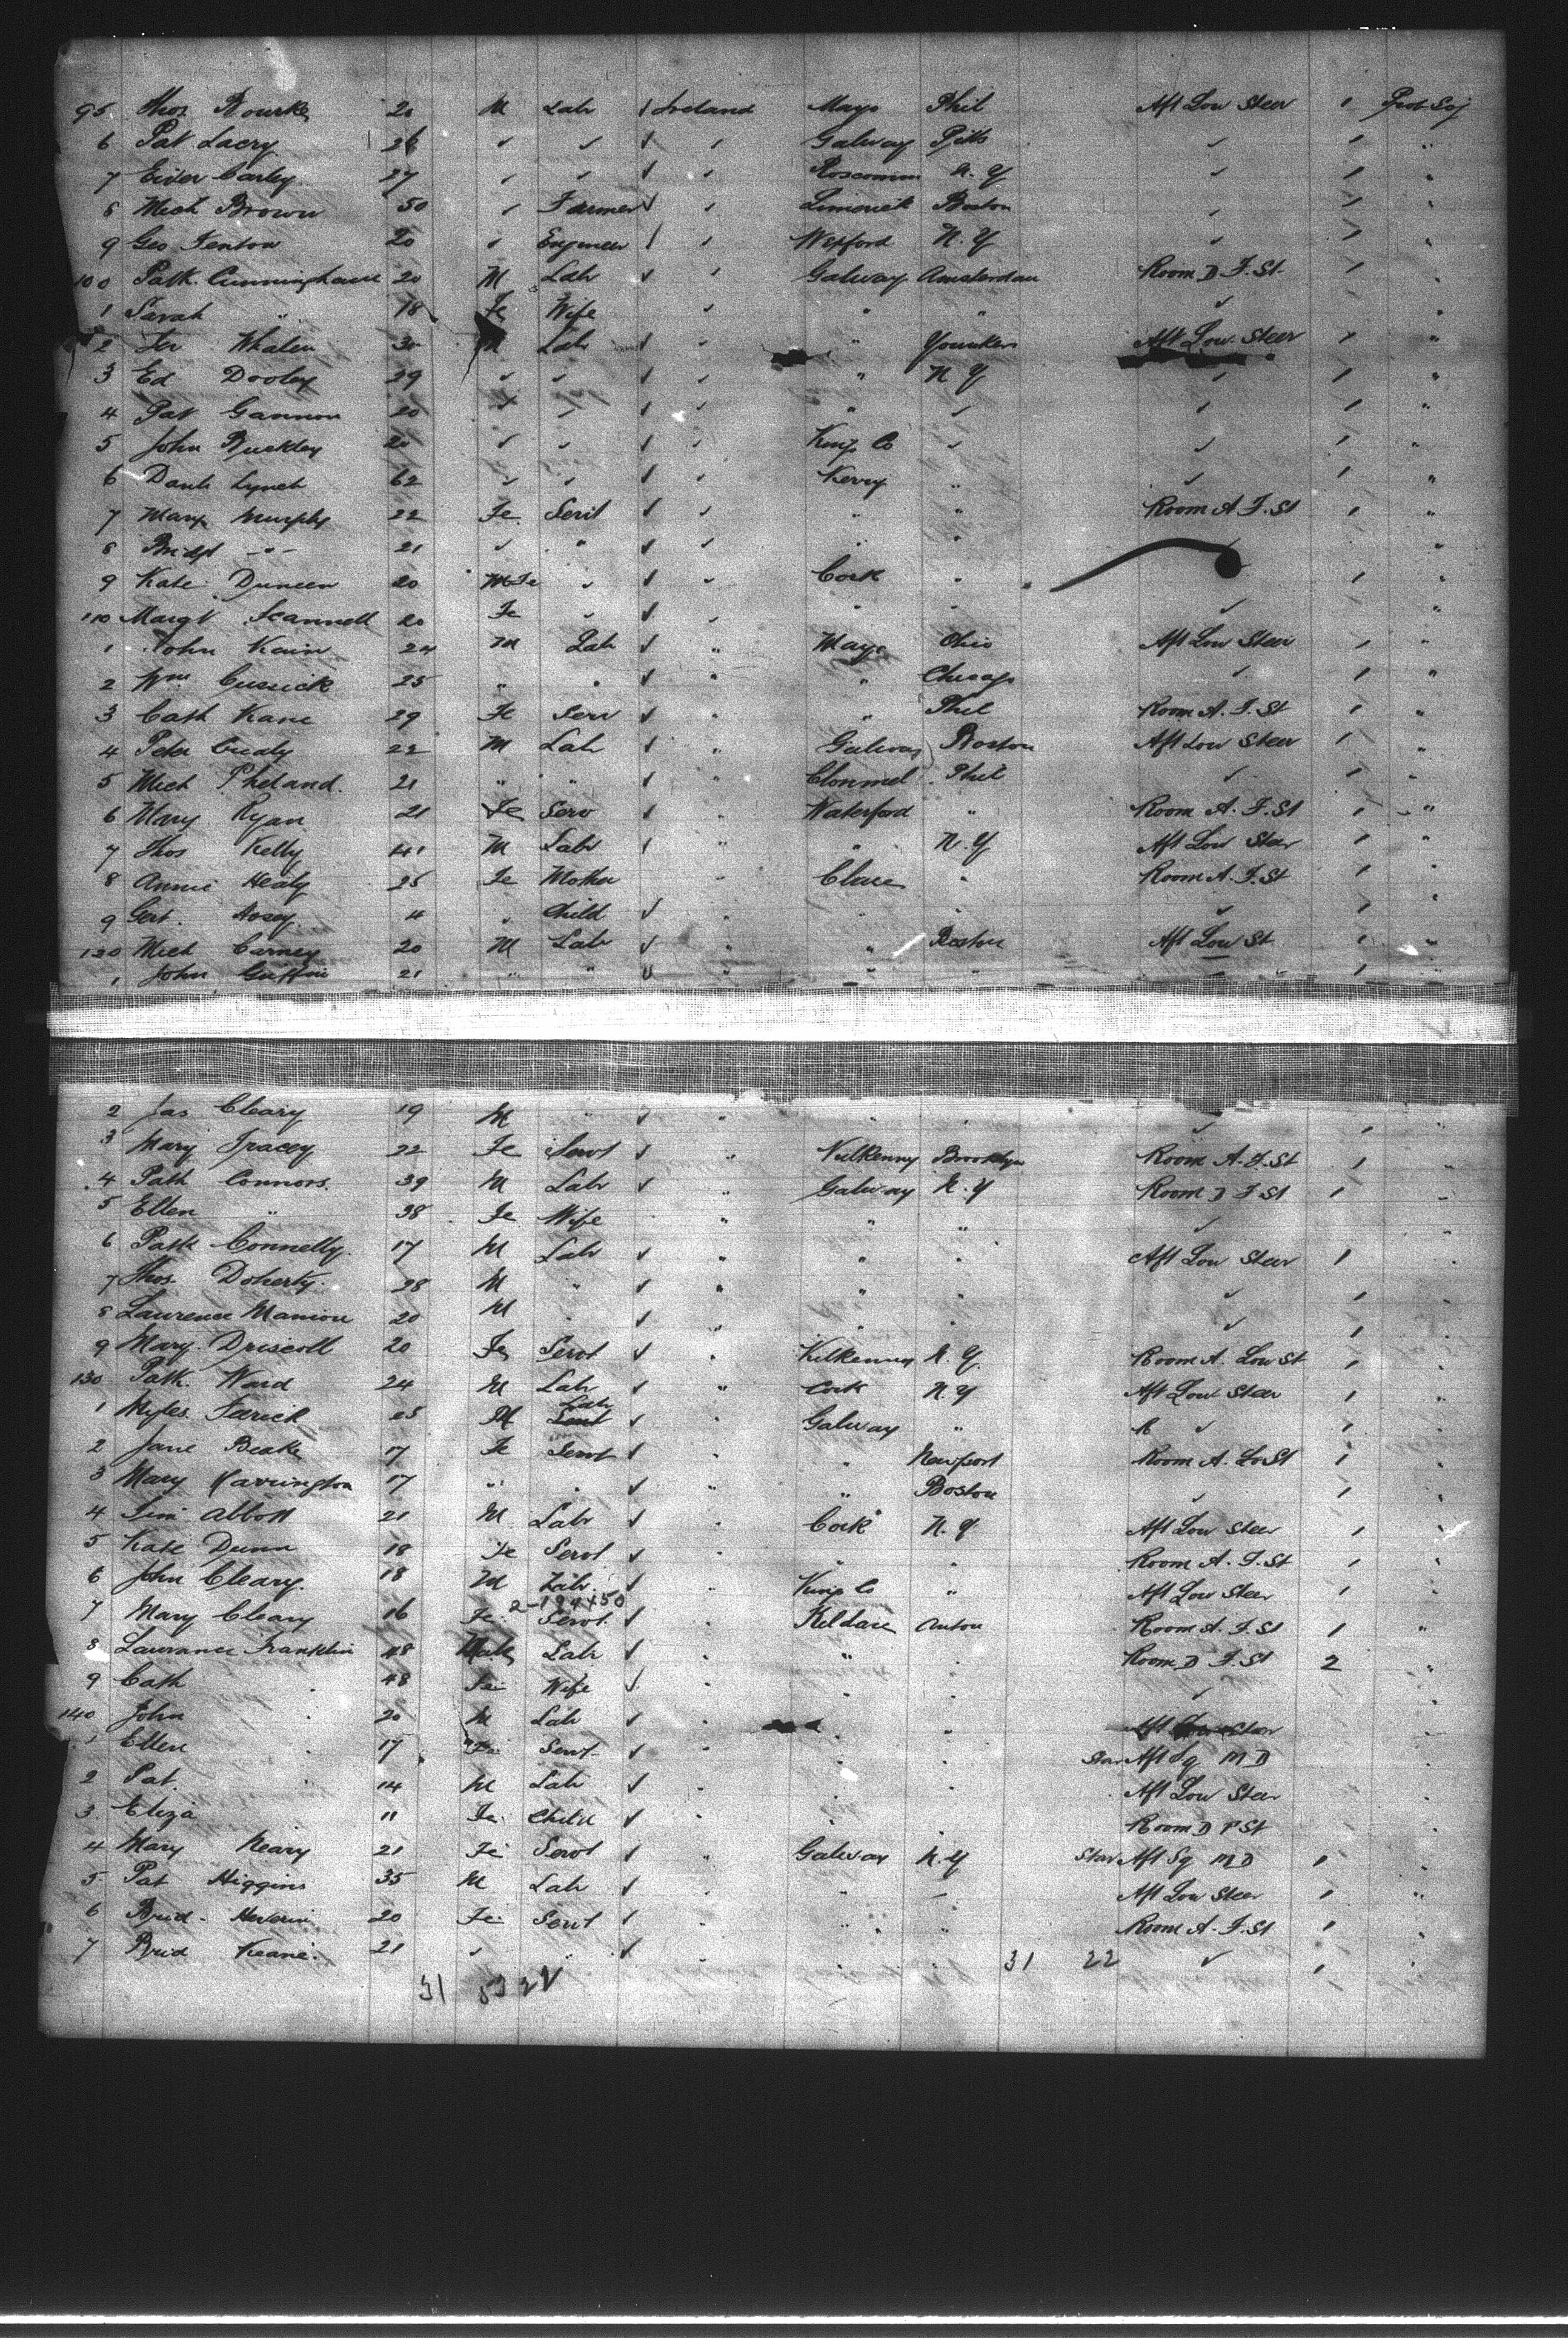 95 Thos Rourke 20 M Labr / Ireland Mayo Phil Aft Low Steer 1 Prot Soj
6 Pat Lacry 26 ✓ ✓ ✓ ✓ Galway Pitts ✓ 1 "
7 Eiver Carley 27 ✓ ✓ ✓ ✓ Roscomm N.Y ✓ 1 "
8 Mich Brown 50 ✓ Farmer ✓ ✓ Limerick Boston ✓ 1 "
9 Geo Fenton 20 ✓ Engineer / ✓ Wexford N.Y ✓ 1 "
100 Patk Cunningham 20 M Labr ✓ ✓ Galway Amsterdam Room D F.St 1 "
1 Sarah " 18 Fe Wife ✓ " " ✓ "
2 Whalen 30 M Labr ✓ ✓ " Yonkers Aft Low Steer 1 "
3 Ed Dooley 29 ✓ ✓ ✓ ✓ " N Y ✓ 1 "
4 Pat Gannon 20 ✓ ✓ ✓ ✓ " ✓ ✓ 1 "
5 John Buckley 20 ✓ ✓ ✓ ✓ Kings Co ✓ ✓ 1 "
6 Danl Lynch 62 ✓ ✓ ✓ ✓ Kerry " ✓ 1 "
7 Mary Murphy 22 Fe Servt ✓ ✓ " " Room A F.St 1 "
8 Bridgt -"- 21 ✓ " ✓ ✓ " "
9 Kate Duneen 20 M Fe ✓ ✓ ✓ Cork " 1 "
110 Margt Scannell 20 Fe ✓ ✓ " " ✓ "
1 John Kain 24 M Labr ✓ " Mayo Ohio Aft Low Steer 1 "
2 Wm Cussick 25 " " ✓ " " Chicago ✓ 1 "
3 Cath Kane 29 Fe Serv ✓ " " Phil Room A.F.St 1 "
4 Peter 22 M Labr ✓ " Galway Boston Aft Low Steer 1 "
5 Mich Pheland 21 " " ✓ " Clonmel Phil ✓ 1 "
6 Mary Ryan 21 Fe Serv ✓ " Waterford " Room A.F.St 1 "
7 Thos Kelly 41 M Labr / " N.Y Aft Low Steer 1
8 Annie Healy 25 Fe Mother " Clare " Room A.F.St 1
9 Gert. 4 " Child ✓ " " " ✓ 1
120 Mich Carney 20 M Labr ✓ " " Boston Aft Low St 1 "
1 John Griffin 21 " " ✓ " " " 1
2 Jas Cleary 19 M " ✓ " " ✓ 1
3 Mary Tracey 22 Fe Servt ✓ " Kilkenny Brooklyn Room A.F.St 1
4 Patk Connors 39 M Labr ✓ " Galway N.Y Room D F St 1
5 Ellen " 38 Fe Wife " " " ✓
6 Patk Connelly 17 M Labr ✓ " " " Aft Low Steer 1
7 Thos. Doherty 28 M " ✓ " " " ✓ 1
8 Laurence Manion 20 M " ✓ " " " ✓ 1
9 Mary Driscoll 20 Fe Servt ✓ " Kilkenny N.Y. Room A. Low St 1
130 Patk Ward 24 M Labr ✓ " Cork N.Y Aft Low Steer 1
1 Myles Farick 25 M Servt Labr ✓ Galway " ✓ 1
2 Jane Beake 17 Fe Servt ✓ " Newport Room A. Lo St 1
3 Mary Harrington 17 " " ✓ " " Boston ✓ 1
4 Jim Abbott 21 M Labr ✓ " Cork N.Y Aft Low Steer 1
5 Kate Dunn 18 Fe Servt ✓ " " Room A.F.St 1
6 John Cleary 18 M Labr ✓ " Kings Co " Aft Low Steer 1
7 Mary Cleary 16 Fe Servt ✓ Kildare Anton Room A.F.St 1 "
8 Lawrance Franklin 48 Male Labr ✓ " " " Room D F.St 2 "
9 Cath " 48 Fe Wife ✓ " " " ✓
140 John " 20 M Labr ✓ " " Aft Low Steer
1 Ellen " 17 Fe Servt ✓ " " Star Aft Sq M D
2 Pat 14 M Labr ✓ " " Aft Low Steer
3 Eliza 11 Fe Child ✓ " " Room D F St
4 Mary Neary 21 Fe Servt ✓ " Galway N.Y Star Aft Sq M D 1
5 Pat Higgins 35 M Labr ✓ " " Aft Low Steer 1 "
6 Brid. 20 Fe Servt ✓ " " " Room A.F.St 1
7 Brid Keane 21 ✓ " ✓ " " 31 22 ✓ 1
31 53 22